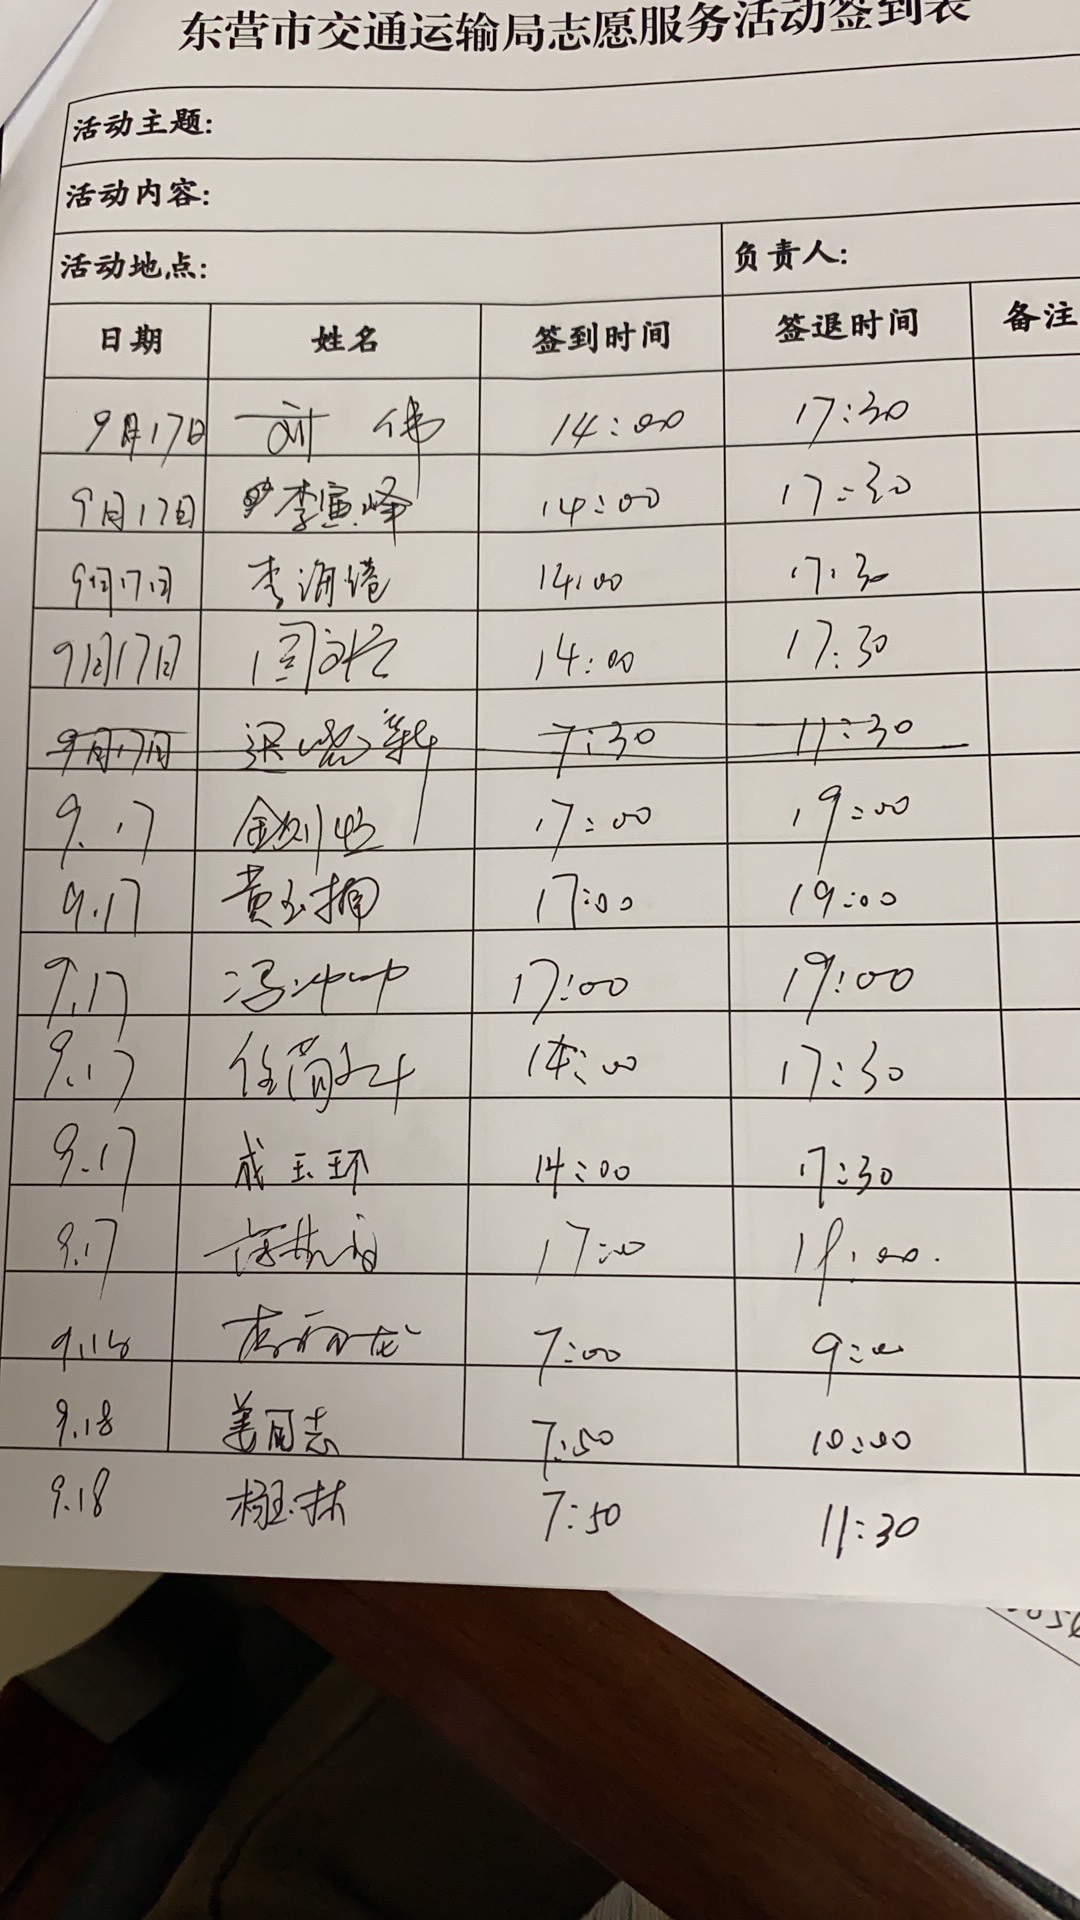 东营市交通运输局志愿服务活动签到表
活动主题:
活动内容:
活动地点: 负责人:
日期 姓名 签到时间 签退时间 备注
9月17日 刘伟 14:00 17:30
9月17日 李寅峰 14:00 17:30
9月17日 李海 14:00 17:30
9月17日 14:00 17:30
9月17日 7:30 11:30
9.17 17:00 19:00
9.17 黄玉 17:00 19:00
9.17 冯冲冲 17:00 19:00
9.17 任 14:00 17:30
9.17 成玉环 14:00 17:30
9.17 17:00
7:00 9:00
9.18 姜同志 7:50 10:00
9.18 杨玉林 7:50 11:30